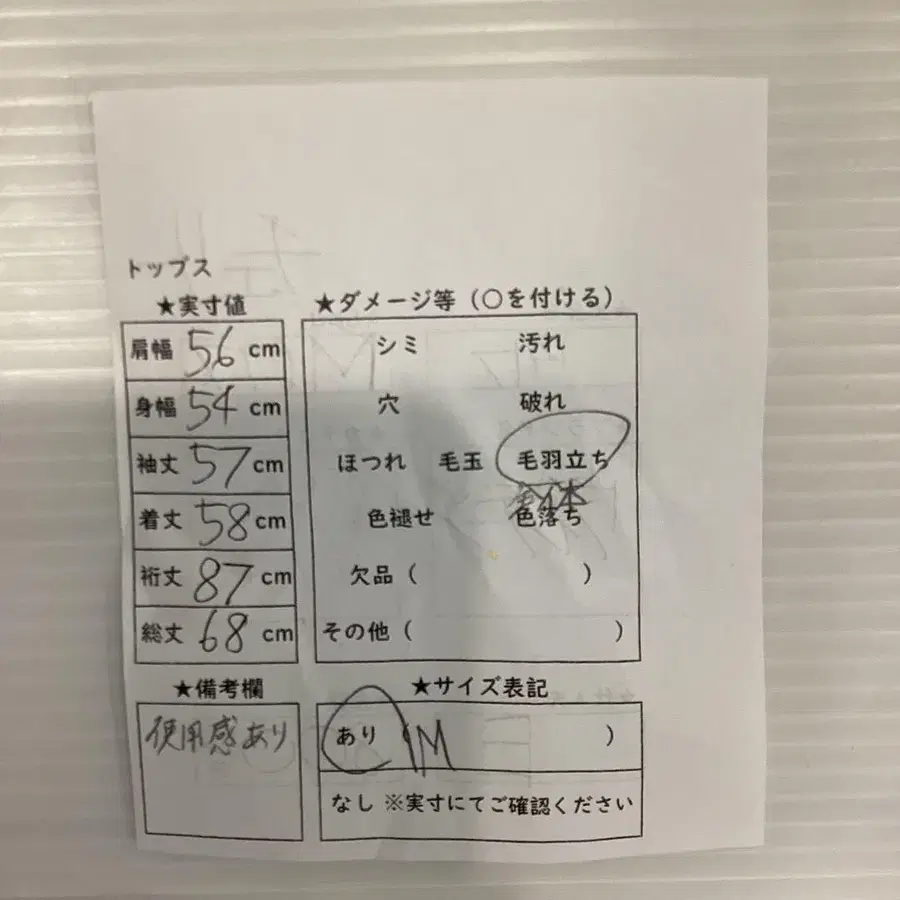 トップス
★実寸値
肩幅 56 cm
身幅 54 cm
袖丈 57 cm
着丈 58 cm
裄丈 87 cm
総丈 68 cm
★ダメージ等（○を付ける）
シミ 汚れ
穴 破れ
ほつれ 毛玉 毛羽立ち
全体
色褪せ 色落ち
欠品（ ）
その他（ ）
★備考欄
使用感あり
★サイズ表記
あり（M ）
なし ※実寸にてご確認ください